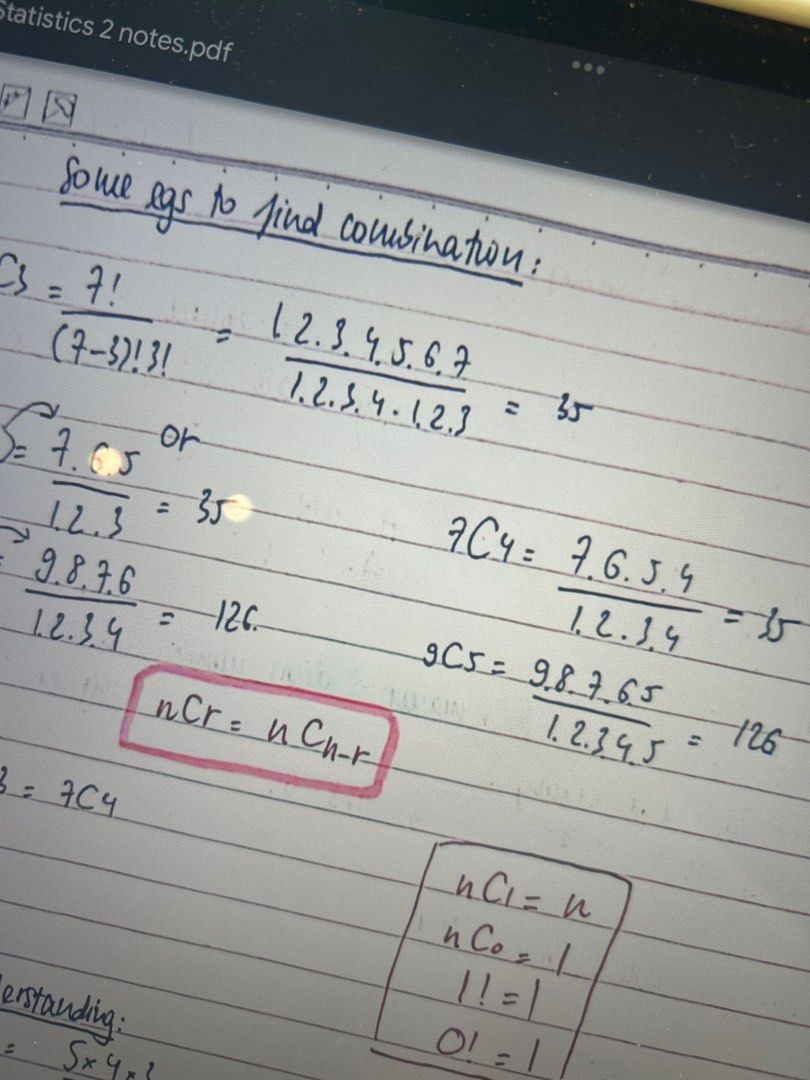 Statistics 2 notes.pdf
Some egs to find combination:
C3 = 7! / (7-3)!3! = 1.2.3.4.5.6.7 / 1.2.3.4.1.2.3 = 35
or
= 7.6.5 / 1.2.3 = 35
7C4 = 7.6.5.4 / 1.2.3.4 = 35
= 9.8.7.6 / 1.2.3.4 = 126.
9C5 = 9.8.7.6.5 / 1.2.3.4.5 = 126
nCr = nCn-r
3 = 7C4
nC1 = n
nC0 = 1
1! = 1
0! = 1
erstanding:
= 5×4×3